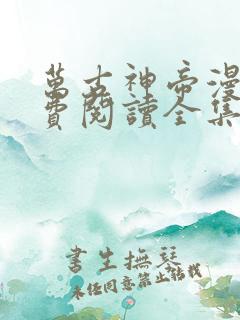 萬古神帝漫
費閱讀全集
書生撫琴
未經同意禁止轉載